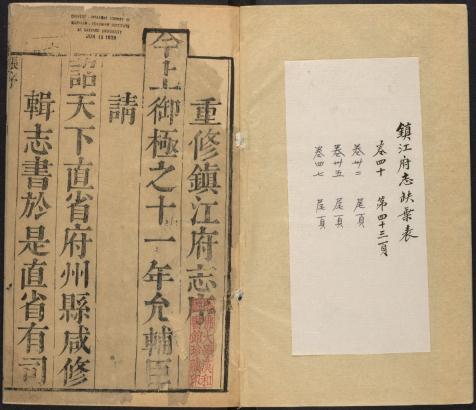 鎮江府志缺葉表
卷四十 第四十三頁
卷卅二 尾頁
卷卅五 尾頁
卷四七 尾頁
重修鎮江府志序
今上御極之十一年允輔臣
請
詔天下直省府州縣咸修
輯志書於是直省有司
張序
JUN 15 1939